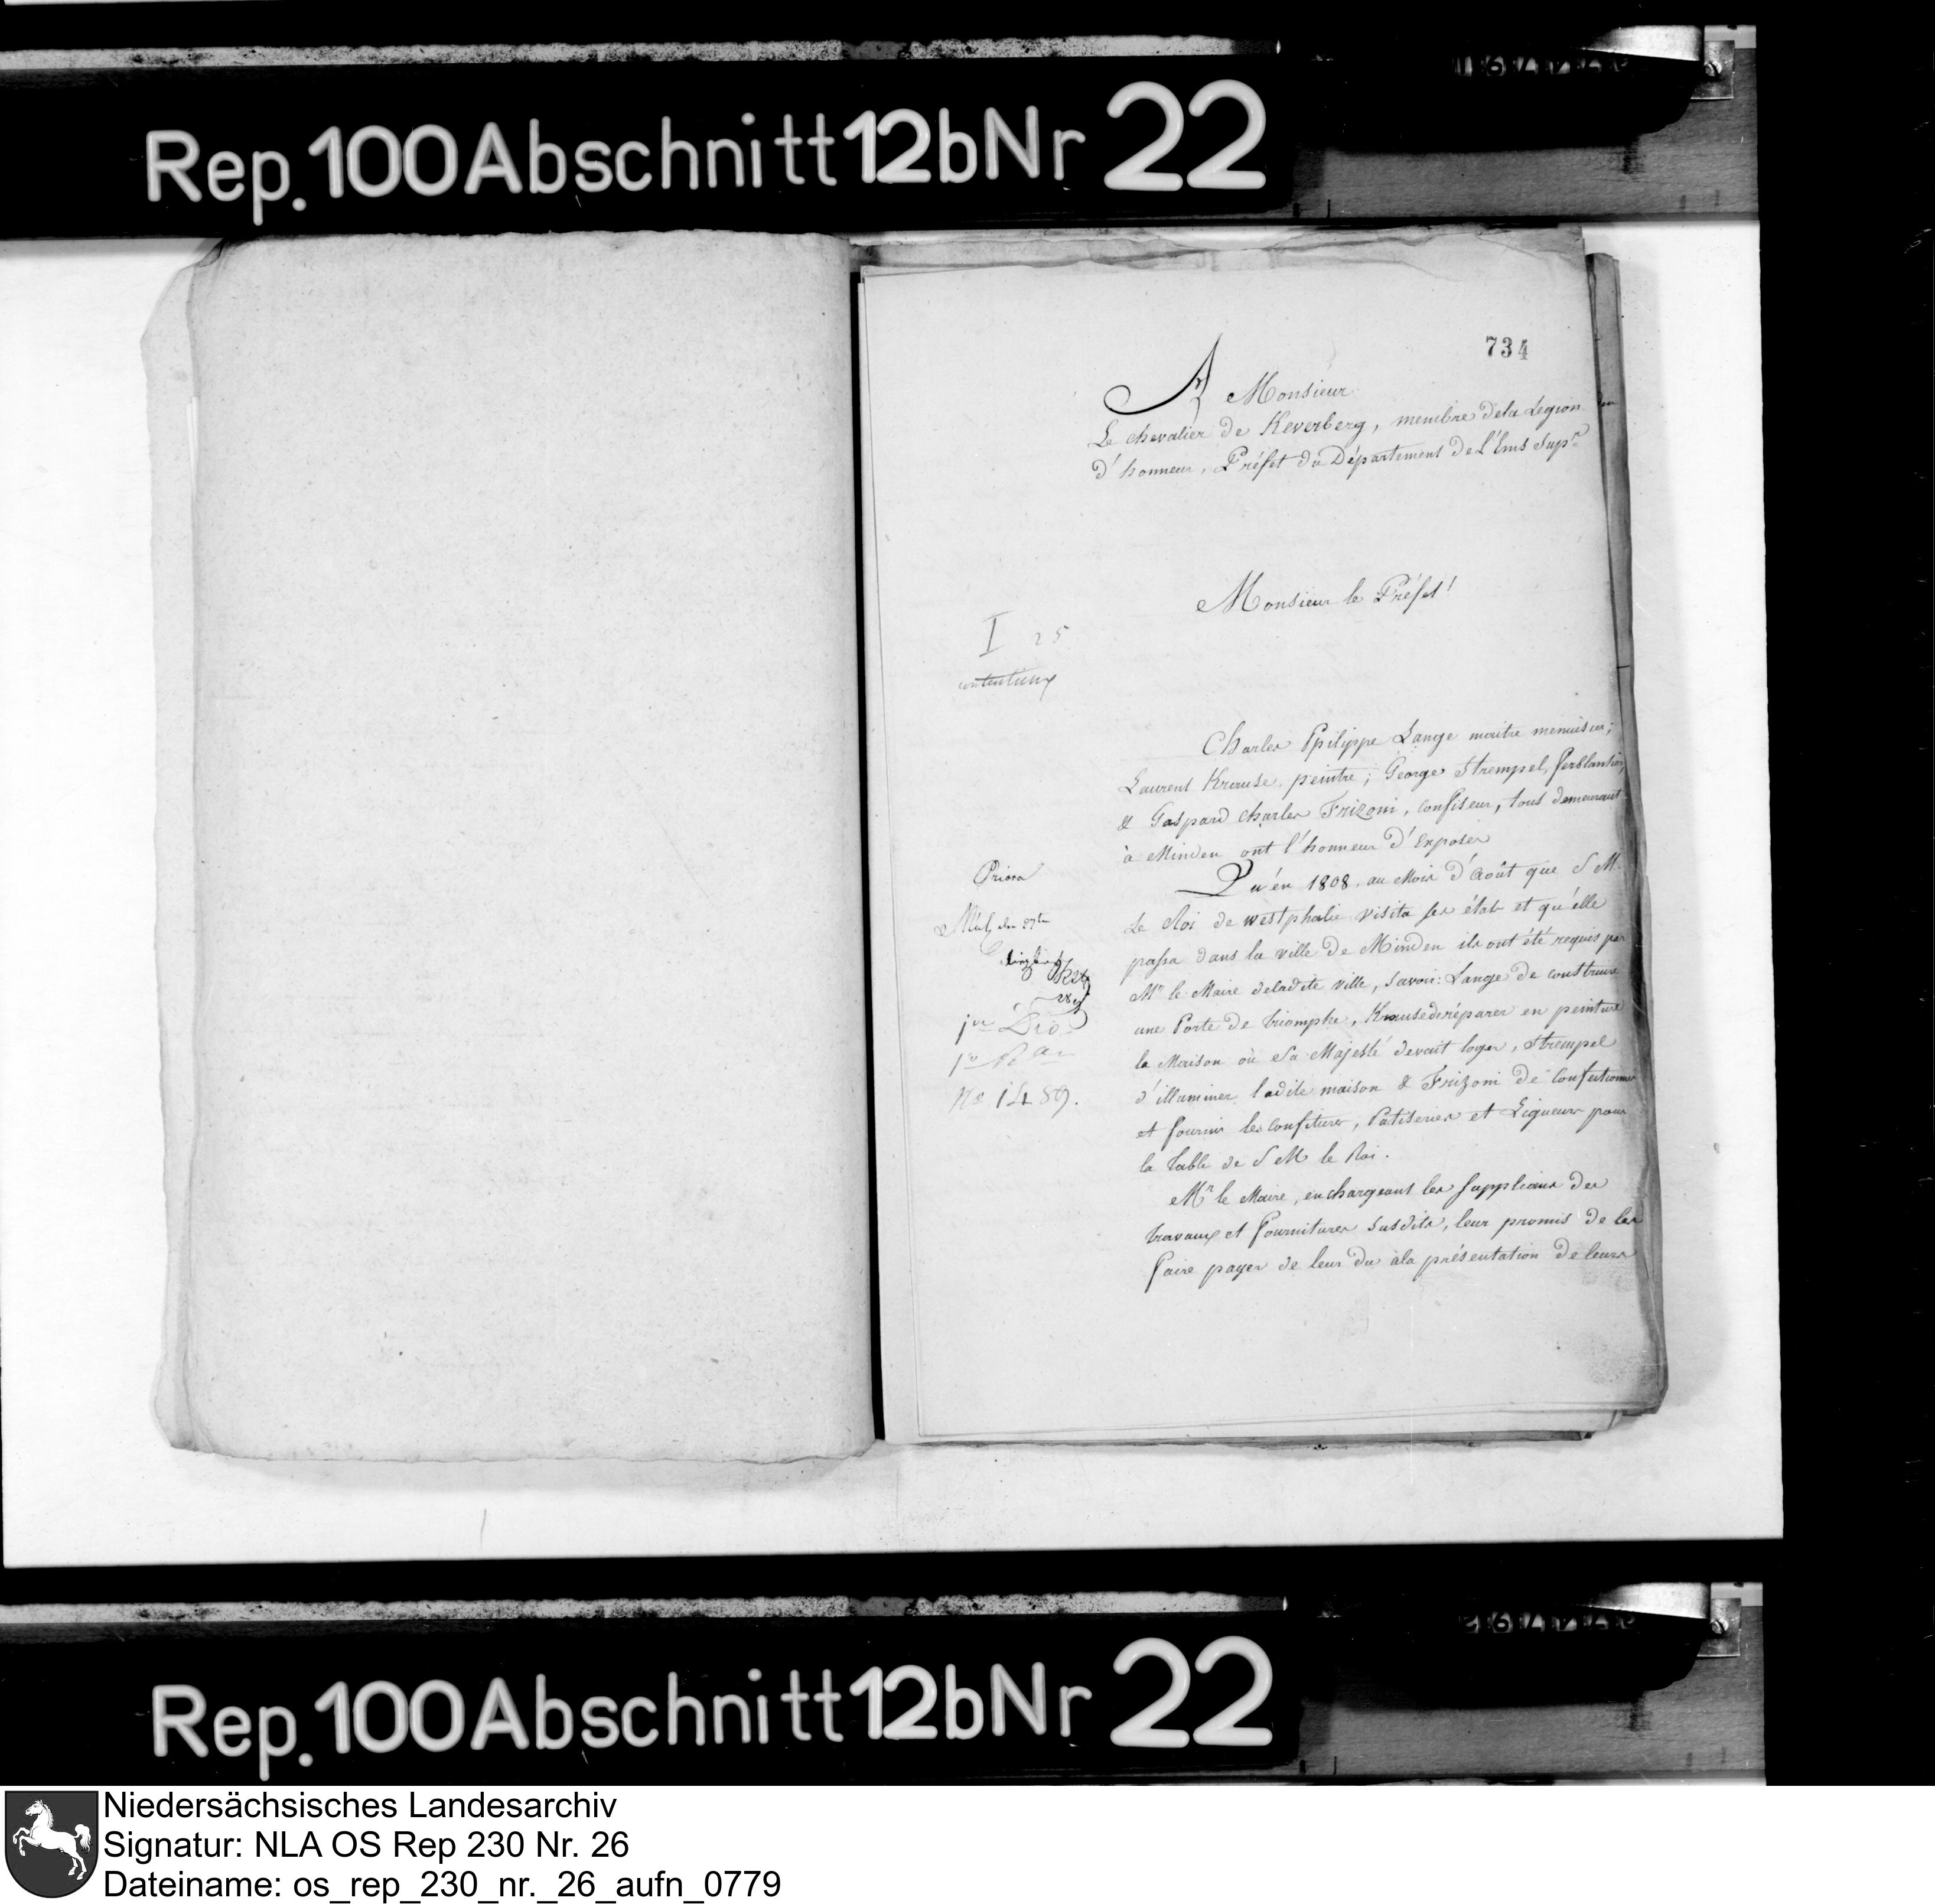 Rep. 100 Abschnitt 12b Nr 22
734
A Monsieur
Le chevalier de Keverberg, membre dela Legion
d'honneur, Préfet du Département de L'Ems Supr
Monsieur le Préfet!
I 25
contentieux
Charles Philippe Lange maitre menuisier;
Laurent Krause, peintre; George Strempel, ferblantier,
& Gaspard Charles Frizoni, confiseur, tous demeurant
à Minden ont l'honneur d'Exposer
Qu'en 1808. au Mois d'Août que S M.
Le Roi de westphalie visita ses états et qu'élle
passa dans la ville de Minden ils ont été requis par
Mr le Maire deladite ville, savoir: Lange de construire
une Porte de triomphe, Krause de réparer en peinture
la Maison où Sa Majesté devait loger, Strempel
d'illuminer ladite maison & Frizoni de Confectionner
et fournir les confitures, Patiseries et Liqueurs pour
la Table de S M le Roi.
Mr le Maire, en chargeant les supplians des
travaux et fournitures susdits, leur promis de les
faire payer de leur du àla présentation de leurs
Priora
No 1489.
Rep. 100 Abschnitt 12b Nr 22
Niedersächsisches Landesarchiv
Signatur: NLA OS Rep 230 Nr. 26
Dateiname: os_rep_230_nr._26_aufn_0779